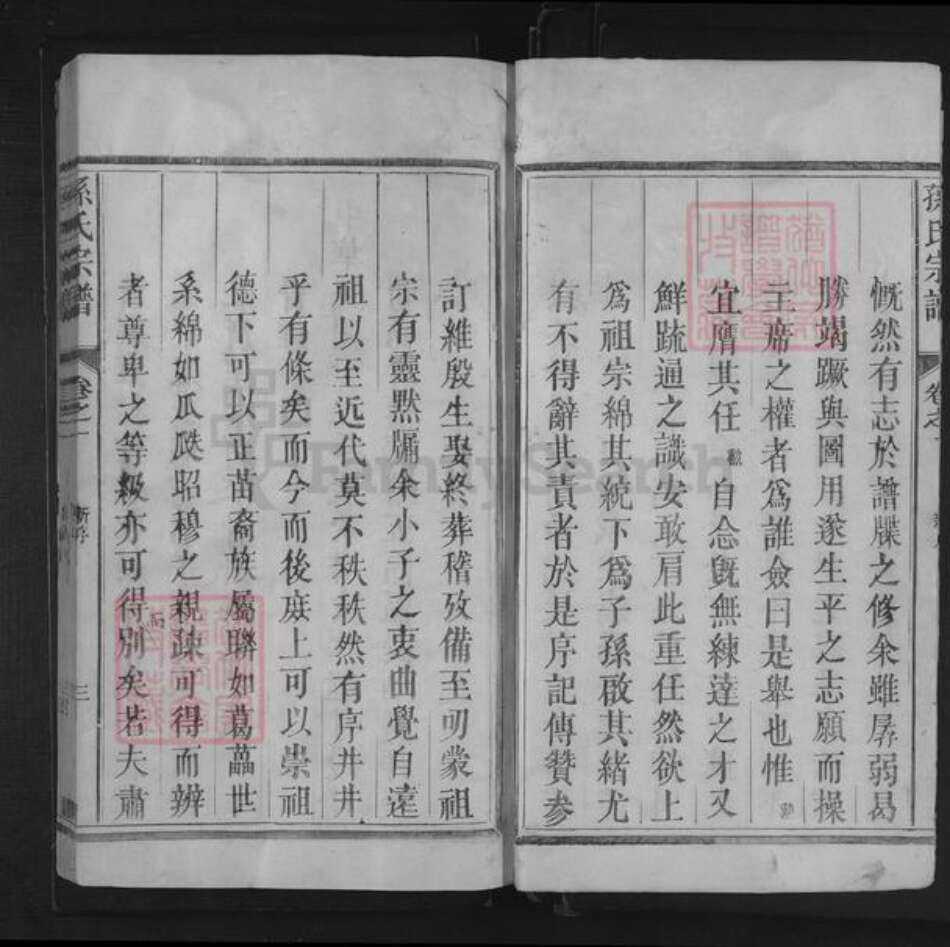 慨然有志於譜牒之修余雖孱弱曷
勝竭蹶與圖用遂生平之志願而操
主席之權者爲誰僉曰是舉也惟
宜膺其任 自念旣無練達之才又
鮮疏通之識安敢肩此重任然欲上
爲祖宗綿其統下爲子孫啟其緒尤
有不得辭其責者於是序記傳贊參
訂維殷生娶終葬稽攷備至叨蒙祖
宗有靈默牖余小子之衷曲覺自遠
祖以至近代莫不秩秩然有序井井
乎有條矣而今而後庶上可以崇祖
德下可以正苗裔族屬聯如葛藟世
系綿如瓜瓞昭穆之親疎可得而辨
者尊卑之等級亦可得別矣若夫肅
孫氏宗譜
卷之一
三
FamilySearch